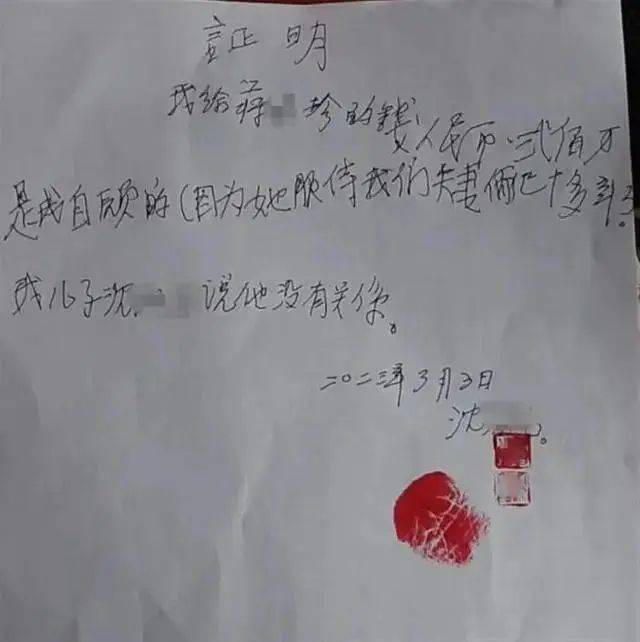 証明
我给蒋珍的钱人民币贰佰万
是我自愿的(因为她服侍我们夫妻俩已十多年了。
我儿子沈说他没有关係。
二〇二三年3月3日
沈。